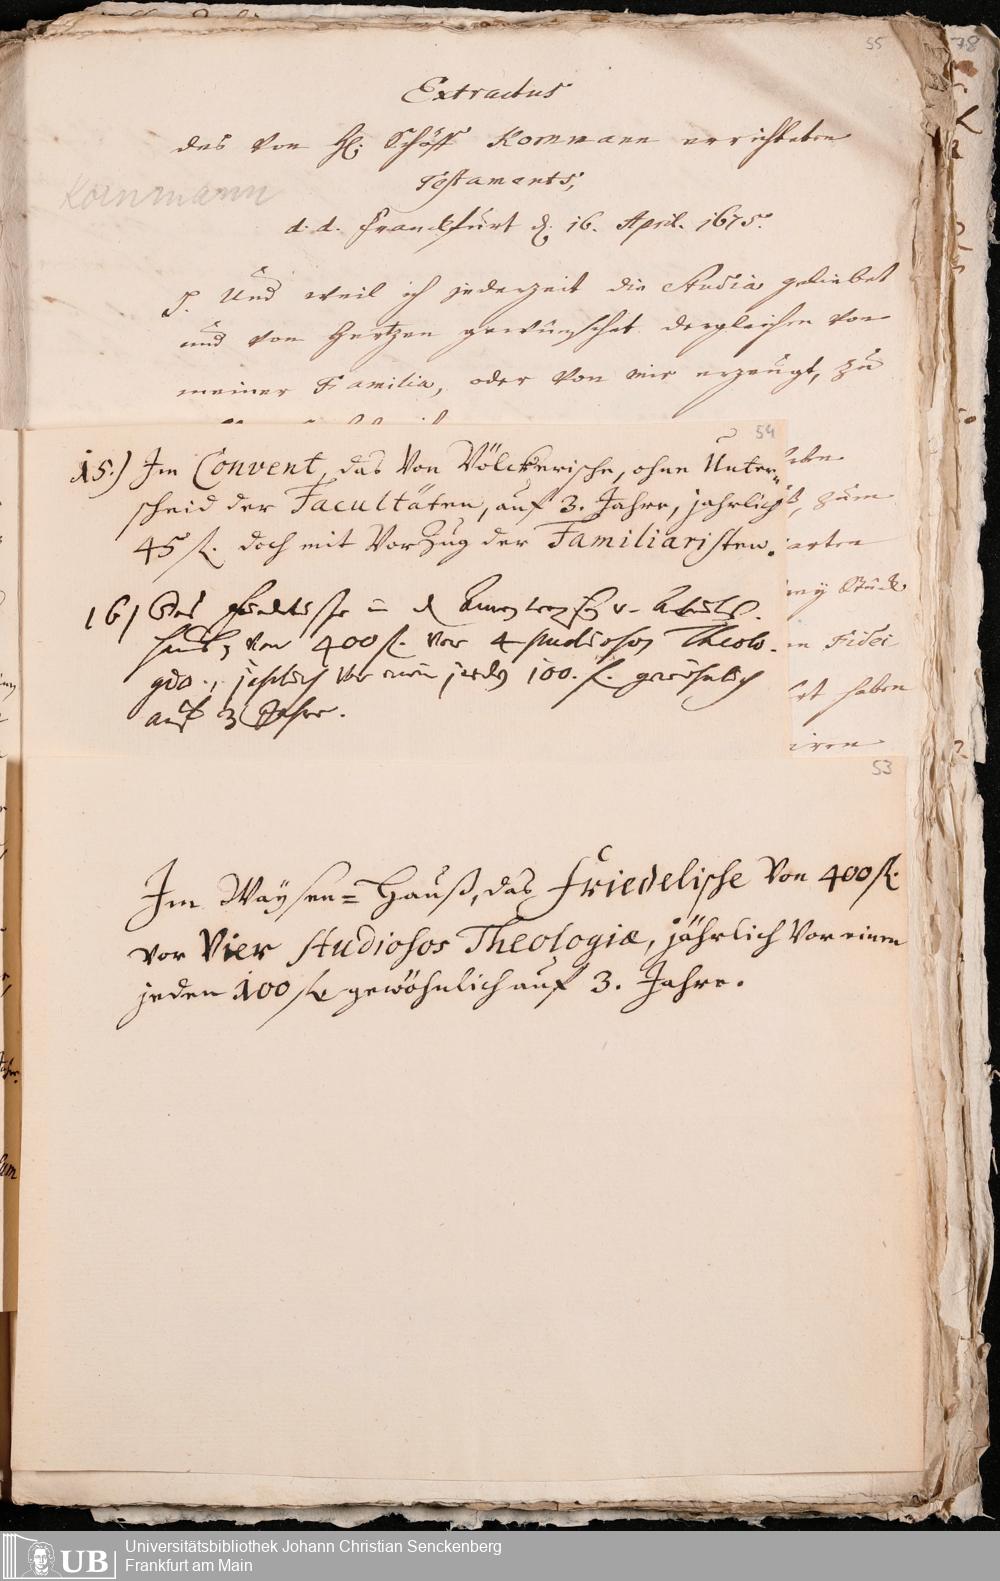 55
78
Extractus
des von H: Schöff Kornmann errichteten
Testaments,
Kornmann
d. d. Franckfurt d. 16. April. 1675.
Und weil ich jederzeit die Studia geliebet
und von Hertzen gewünschet dergleichen von
meiner Familia, oder von mir erzeugt, zu
54
15.) Im Convent, das Von Völckerische, ohne Unter-
scheid der Facultäten, auf 3. Jahre, jährlich
45 fl. doch mit Vorzug der Familiaristen.
16) Das Fridelische in d Armen u. Arbeits
hauß, von 400 fl. vor 4 studiosos Theolo-
giae, jährlich vor einen jeden 100. fl. gewöhnlich
auf 3 Jahre.
zum
arten
Stück
Fidei
haben
53
Im Waysen=Hauß, das Friedelische Von 400 fl.
vor Vier Studiosos Theologiæ, jährlich Vor einen
jeden 100 fl. gewöhnlich auf 3. Jahre.
UB
Universitätsbibliothek Johann Christian Senckenberg
Frankfurt am Main